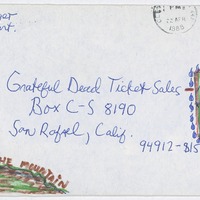 Grateful Dead Ticket Sales
Box C-S 8190
San Rafael, Calif.
94912-815
THE MOUNTAIN